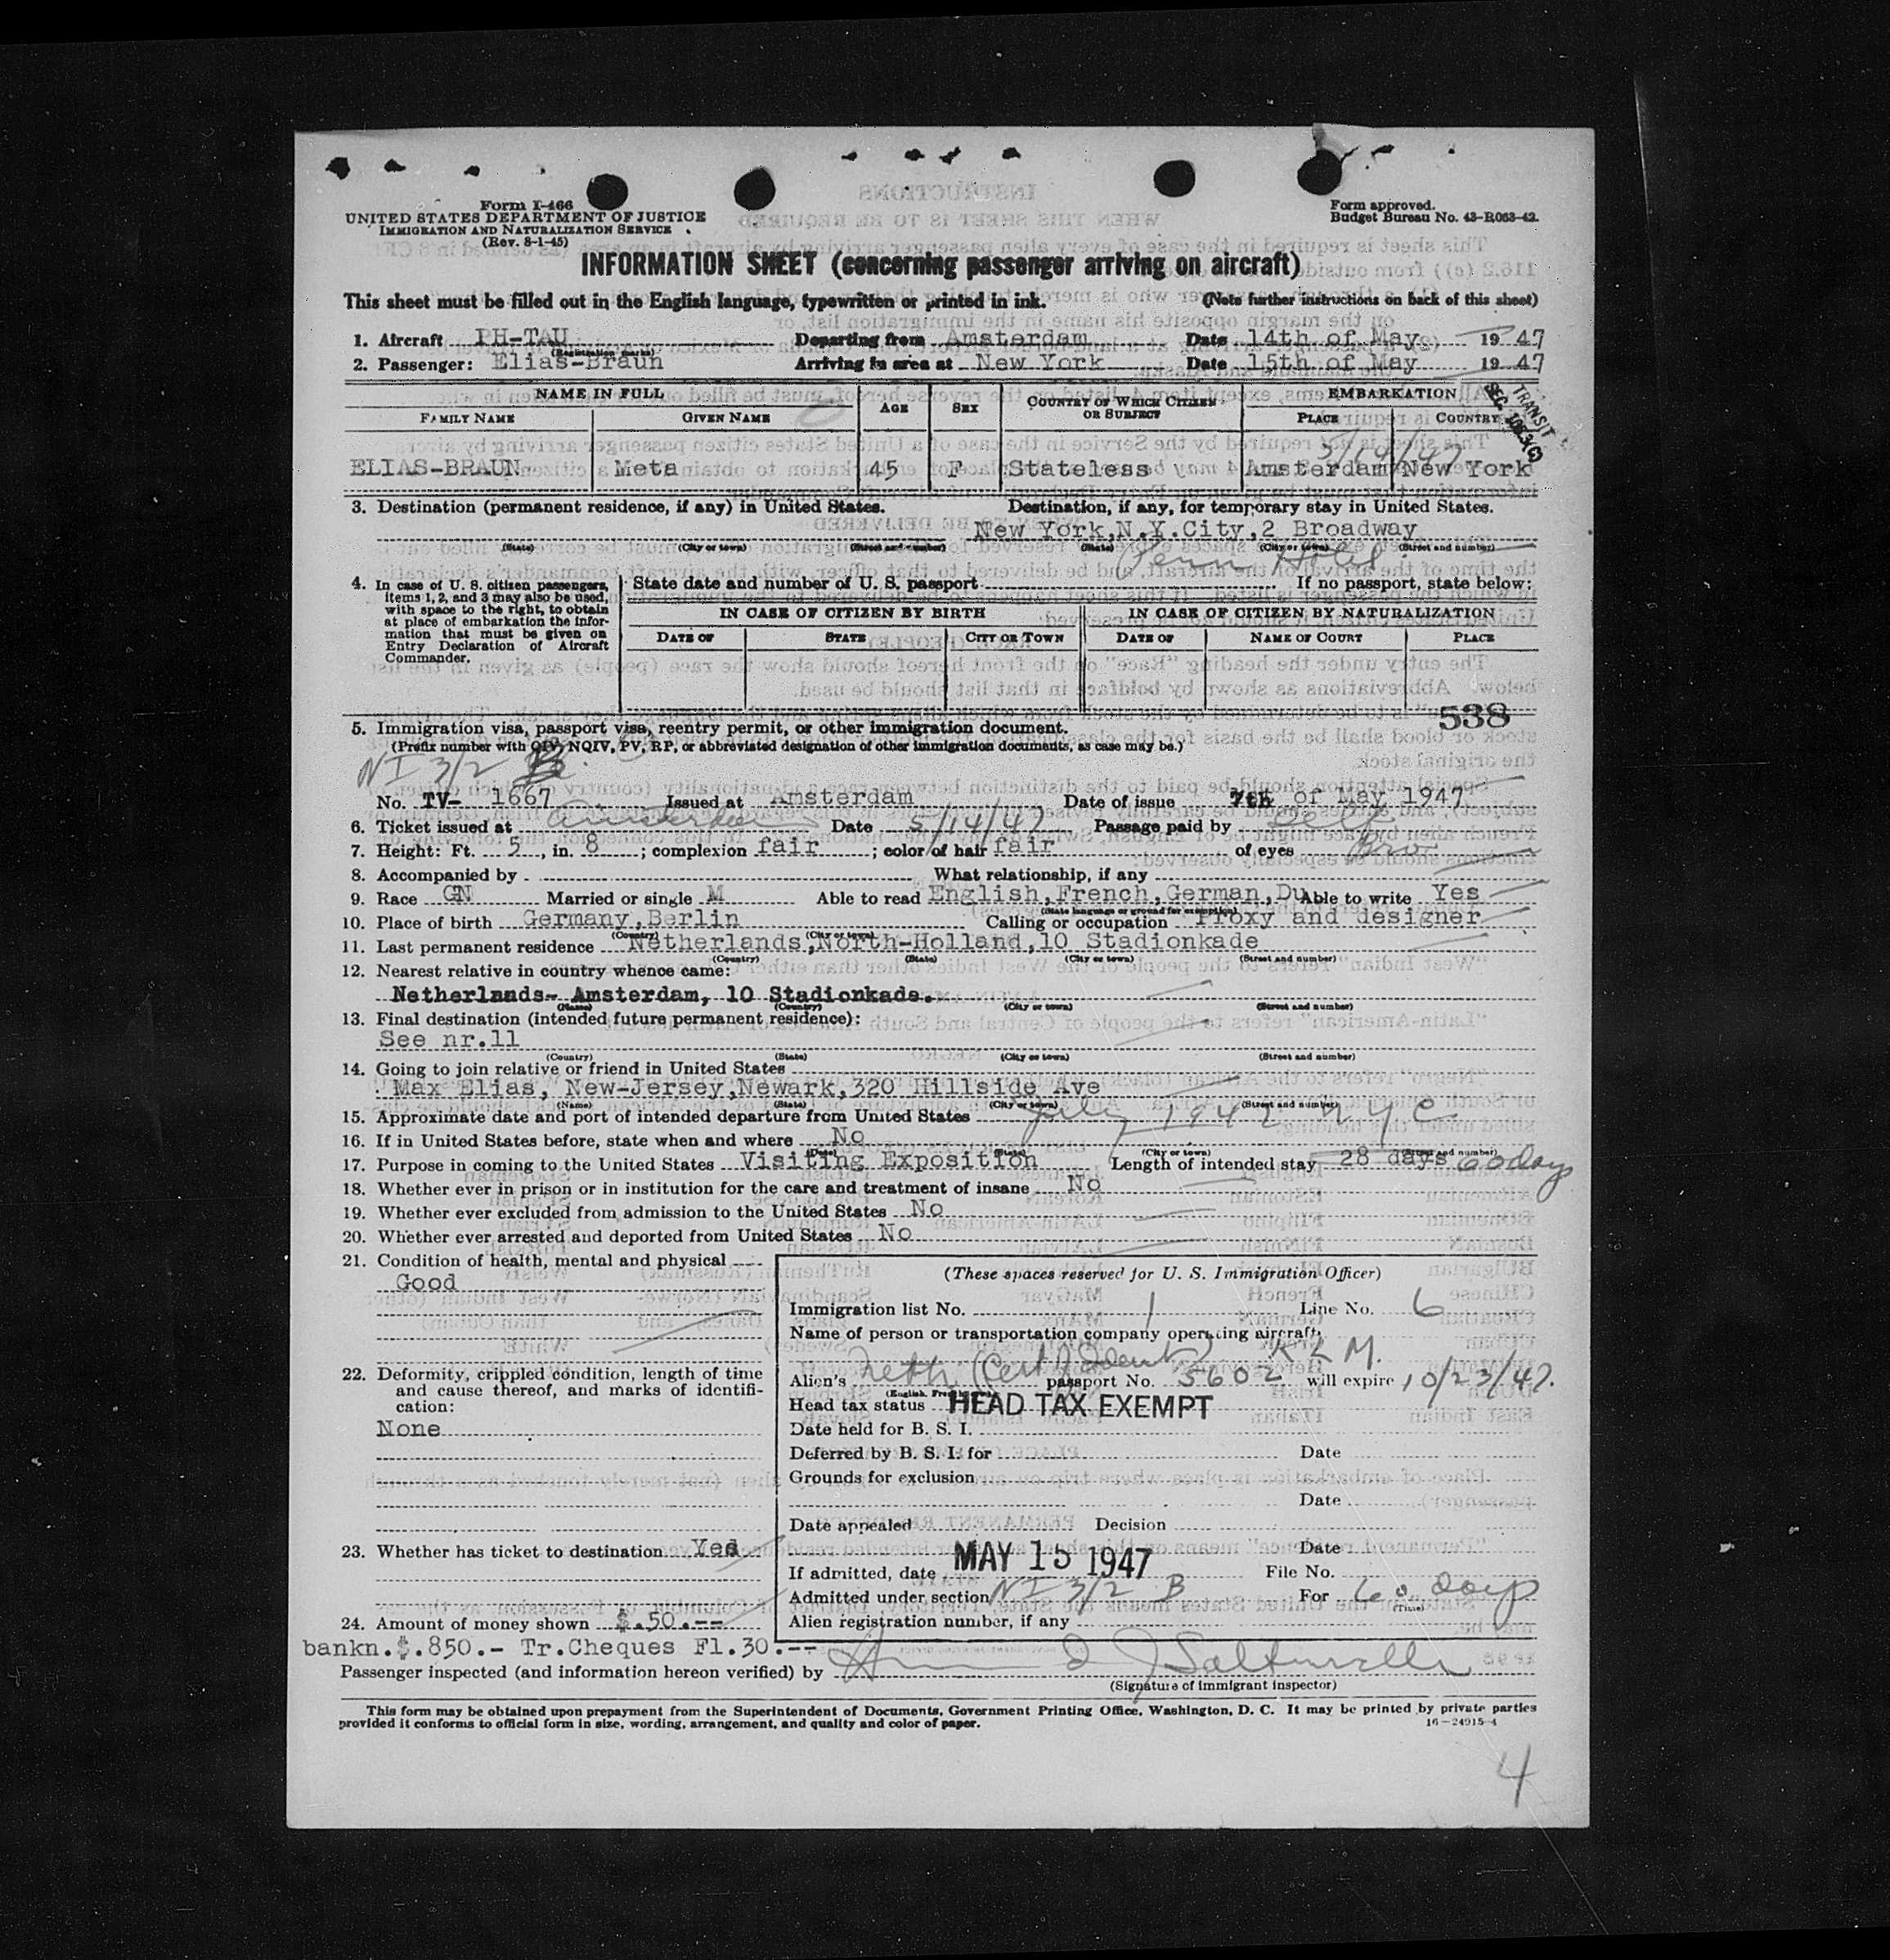 Form I-466
UNITED STATES DEPARTMENT OF JUSTICE
IMMIGRATION AND NATURALIZATION SERVICE
(Rev. 8-1-45)
Form approved.
Budget Bureau No. 43-R063-42.
INFORMATION SHEET (concerning passenger arriving on aircraft)
This sheet must be filled out in the English language, typewritten or printed in ink. (Note further instructions on back of this sheet)
1. Aircraft PH-TAU Departing from Amsterdam Date 14th of May 1947
(Registration marks)
2. Passenger: Elias-Braun Arriving in area at New York Date 15th of May 1947
NAME IN FULL AGE SEX COUNTRY OF WHICH CITIZEN OR SUBJECT EMBARKATION
FAMILY NAME GIVEN NAME PLACE COUNTRY
TRANSIT
5/14/47
ELIAS-BRAUN Meta 45 F Stateless Amsterdam/New York
3. Destination (permanent residence, if any) in United States. Destination, if any, for temporary stay in United States.
New York,N.Y.City,2 Broadway
(State) (City or town) (Street and number) (State) (City or town) (Street and number)
Penn Hotel
4. In case of U. S. citizen passengers, items 1, 2, and 3 may also be used, with space to the right, to obtain at place of embarkation the information that must be given on Entry Declaration of Aircraft Commander.
State date and number of U. S. passport If no passport, state below:
IN CASE OF CITIZEN BY BIRTH IN CASE OF CITIZEN BY NATURALIZATION
DATE OF STATE CITY OR TOWN DATE OF NAME OF COURT PLACE
538
5. Immigration visa, passport visa, reentry permit, or other immigration document.
(Prefix number with QIV, NQIV, PV, RP, or abbreviated designation of other immigration documents, as case may be.)
NI 3/2 B
No. TV- 1667 Issued at Amsterdam Date of issue 7th of May 1947
6. Ticket issued at Amsterdam Date 5/14/47 Passage paid by Self
7. Height: Ft. 5, in. 8; complexion fair; color of hair fair of eyes Bro
8. Accompanied by - What relationship, if any
9. Race GN Married or single M Able to read English,French,German,Du Able to write Yes
(State language or ground for exemption)
10. Place of birth Germany,Berlin Calling or occupation Proxy and designer
(Country) (City or town)
11. Last permanent residence Netherlands,North-Holland,10 Stadionkade
(Country) (State) (City or town) (Street and number)
12. Nearest relative in country whence came:
Netherlands- Amsterdam, 10 Stadionkade.
(Name) (Country) (City or town) (Street and number)
13. Final destination (intended future permanent residence):
See nr.11
(Country) (State) (City or town) (Street and number)
14. Going to join relative or friend in United States
Max Elias, New-Jersey,Newark,320 Hillside Ave
(Name) (State) (City or town) (Street and number)
15. Approximate date and port of intended departure from United States July 1947 NYC
16. If in United States before, state when and where No
(Date) (State) (City or town) (Street and number)
17. Purpose in coming to the United States Visiting Exposition Length of intended stay 28 days 60 days
18. Whether ever in prison or in institution for the care and treatment of insane No
19. Whether ever excluded from admission to the United States No
20. Whether ever arrested and deported from United States No
21. Condition of health, mental and physical
Good
22. Deformity, crippled condition, length of time and cause thereof, and marks of identification:
None
23. Whether has ticket to destination Yes
24. Amount of money shown $.50.--
bankn.$.850.- Tr.Cheques Fl.30.--
(These spaces reserved for U. S. Immigration Officer)
Immigration list No. 1 Line No. 6
Name of person or transportation company operating aircraft
KLM.
Alien's Neth (Cert Ident) passport No. 5602 will expire 10/23/47.
Head tax status HEAD TAX EXEMPT
Date held for B. S. I.
Deferred by B. S. I. for Date
Grounds for exclusion
Date
Date appealed Decision
Date
If admitted, date MAY 15 1947 File No.
Admitted under section NI 3/2 B For 60 days
(Time)
Alien registration number, if any
Passenger inspected (and information hereon verified) by
(Signature of immigrant inspector)
This form may be obtained upon prepayment from the Superintendent of Documents, Government Printing Office, Washington, D. C. It may be printed by private parties
provided it conforms to official form in size, wording, arrangement, and quality and color of paper. 16-24915-4
4